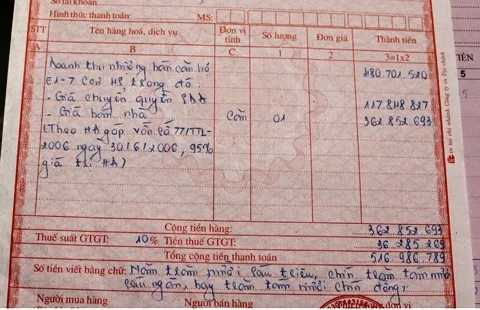 Số tài khoản
Hình thức thanh toán: MS:
STT Tên hàng hoá, dịch vụ Đơn vị tính Số lượng Đơn giá Thành tiền
A B C 1 2 3=1x2
Doanh thu nhượng bán căn hộ 480.701.520
E1-7 Căn trong đó:
- Giá chuyển quyền 117.848.827
- Giá bán nhà Căn 01 362.852.693
(Theo HĐ góp vốn số 77/TTL-
2006 ngày 30/6/2006, 95%
giá trị HĐ)
Cộng tiền hàng: 362 852 693
Thuế suất GTGT: 10% Tiền thuế GTGT: 36.285.269
Tổng cộng tiền thanh toán 516.986.789
Số tiền viết bằng chữ: Năm trăm mười sáu triệu, chín trăm tám mươi
sáu ngàn, bảy trăm tám mươi chín đồng
Người mua hàng Người bán hàng đơn vị
TIỀN
5